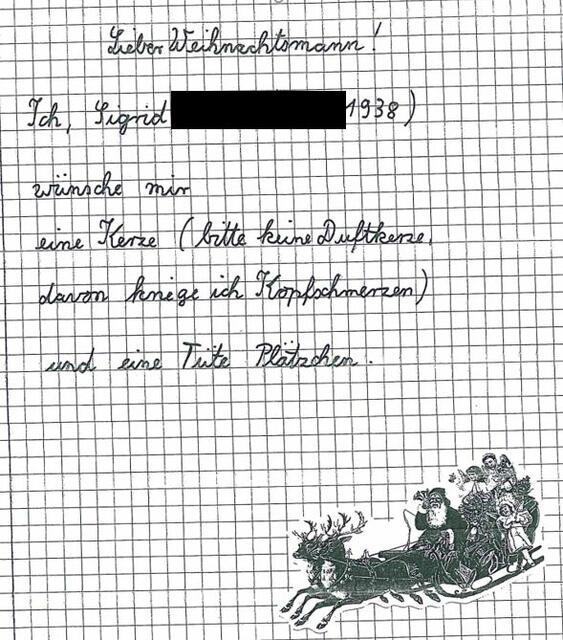 Lieber Weihnachtsmann!
Ich, Sigrid 1938)
wünsche mir
eine Kerze (bitte keine Duftkerze,
davon kriege ich Kopfschmerzen)
und eine Tüte Plätzchen.